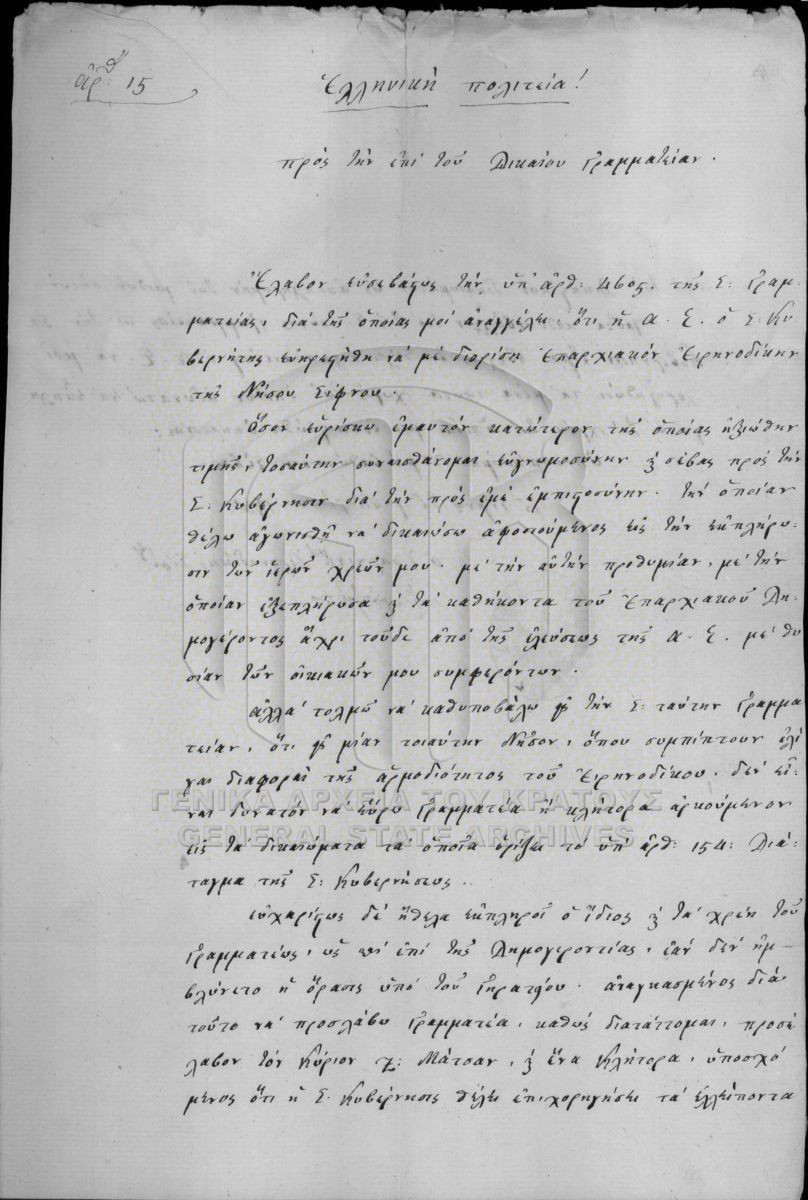 ἀρθ: 15
Ἑλληνικὴ πολιτεία!
πρὸς τὴν ἐπὶ τοῦ Δικαίου Γραμματείαν.
Ἔλαβον εὐσεβάστως τὴν ὑπ' ἀρθ: 4605. τῆς Σ: Γραμ-
ματείας, διὰ τῆς ὁποίας μοὶ ἀναγγέλει, ὅτι ἡ Α. Ε. ὁ Σ: Κυ-
βερνήτης εὐηρεστήθη νὰ μὲ διορίσῃ Ἐπαρχιακὸν Εἰρηνοδίκην
τῆς Νήσου Σίφνου.
Ὅσον εὑρίσκω ἐμαυτὸν κατώτερον τῆς ὁποίας ἠξιώθην
τιμῆς, τοσαύτην συναισθάνομαι εὐγνωμοσύνην ϗ σέβας πρὸς τὴν
Σ. Κυβέρνησιν διὰ τὴν πρὸς ἐμὲ ἐμπιστοσύνην. τὴν ὁποίαν
θέλω ἀγωνισθῆ νὰ δικαιώσω ἀφοσιούμενος εἰς τὴν ἐκπλήρω-
σιν τῶν ἱερῶν χρεῶν μου. μὲ τὴν αὐτὴν προθυμίαν, μὲ τὴν
ὁποίαν ἐξεπλήρωσα ϗ τὰ καθήκοντα τοῦ Ἐπαρχιακοῦ Δη-
μογέροντος ἄχρι τοῦδε ἀπὸ τῆς ἐλεύσεως τῆς Α. Ε. μὲ θυ
σίαν τῶν οἰκιακῶν μου συμφερόντων.
ἀλλὰ τολμῶ νὰ καθυποβάλω εἰς τὴν Σ: ταύτην Γραμμα
τείαν, ὅτι εἰς μίαν τοιαύτην Νῆσον, ὅπου συμπίπτουν ὀλί
γαι διαφοραὶ τῆς ἁρμοδιότητος τοῦ Εἰρηνοδίκου, δὲν εἶ-
ναι δυνατὸν νὰ εὕρω Γραμματέα ἢ κλήτορα ἀρκούμενον
εἰς τὰ δικαιώματα τὰ ὁποῖα ὁρίζει τὸ ὑπ' ἀρθ: 154: Διά-
ταγμα τῆς Σ: Κυβερνήσεως.
εὐχαρίστως δὲ ἤθελα ἐκπληροῖ ὁ ἴδιος ϗ τὰ χρέη τοῦ
Γραμματέως, ὡς ἐπὶ τῆς Δημογεροντίας, ἐὰν δὲν ἠμ-
βλύνετο ἡ ὅρασις ὑπὸ τοῦ γηρατείου. ἀναγκασμένος διὰ
τοῦτο νὰ προσλάβω Γραμματέα, καθὼς διατάττομαι, προσέ
λαβον τὸν Κύριον Μάτσαν, ϗ ἕνα Κλήτορα, ὑποσχό
μενος ὅτι ἡ Σ. Κυβέρνησις θέλει ἐπιχορηγήσει τὰ ἐλλείποντα
ΓΕΝΙΚΑ ΑΡΧΕΙΑ ΤΟΥ ΚΡΑΤΟΥΣ
GENERAL STATE ARCHIVES